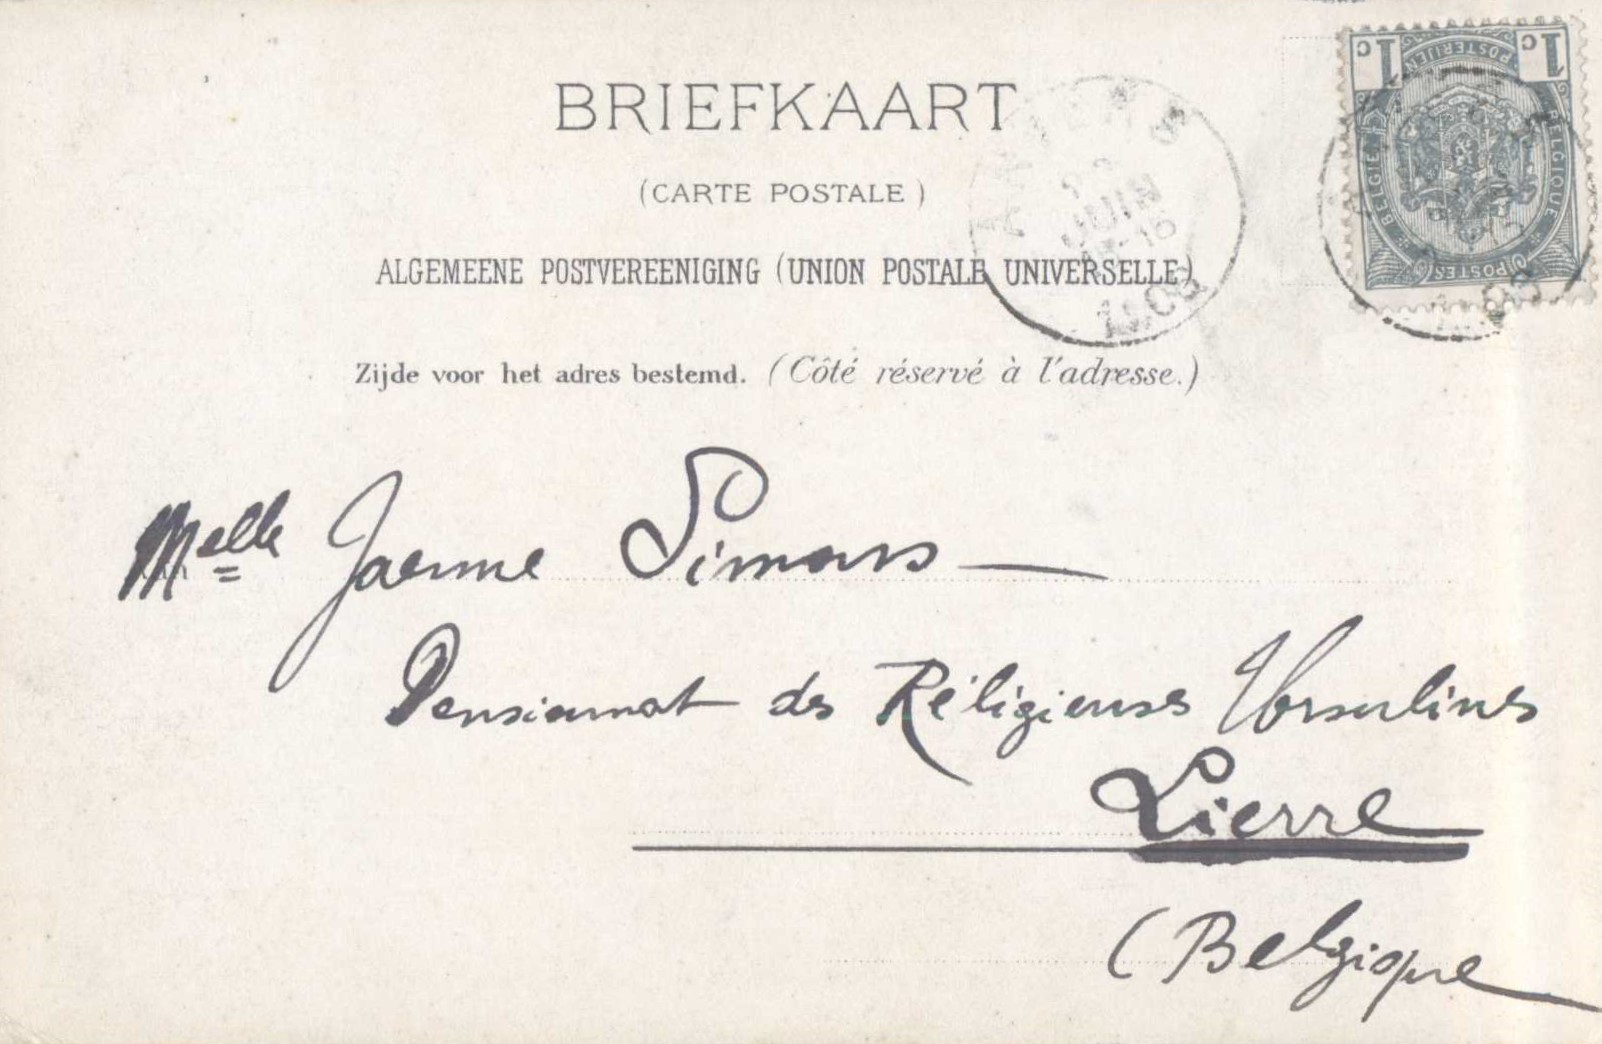 BRIEFKAART
(CARTE POSTALE)
ALGEMEENE POSTVEREENIGING (UNION POSTALE UNIVERSELLE)
Zijde voor het adres bestemd. (Côté réservé à l'adresse.)
1c 1c
POSTERIJEN
BELGIE BELGIQUE
POSTES
JUIN
Melle Jaenne Simons
Pensionnat des Réligieuses Ursulines
Lierre
(Belgique